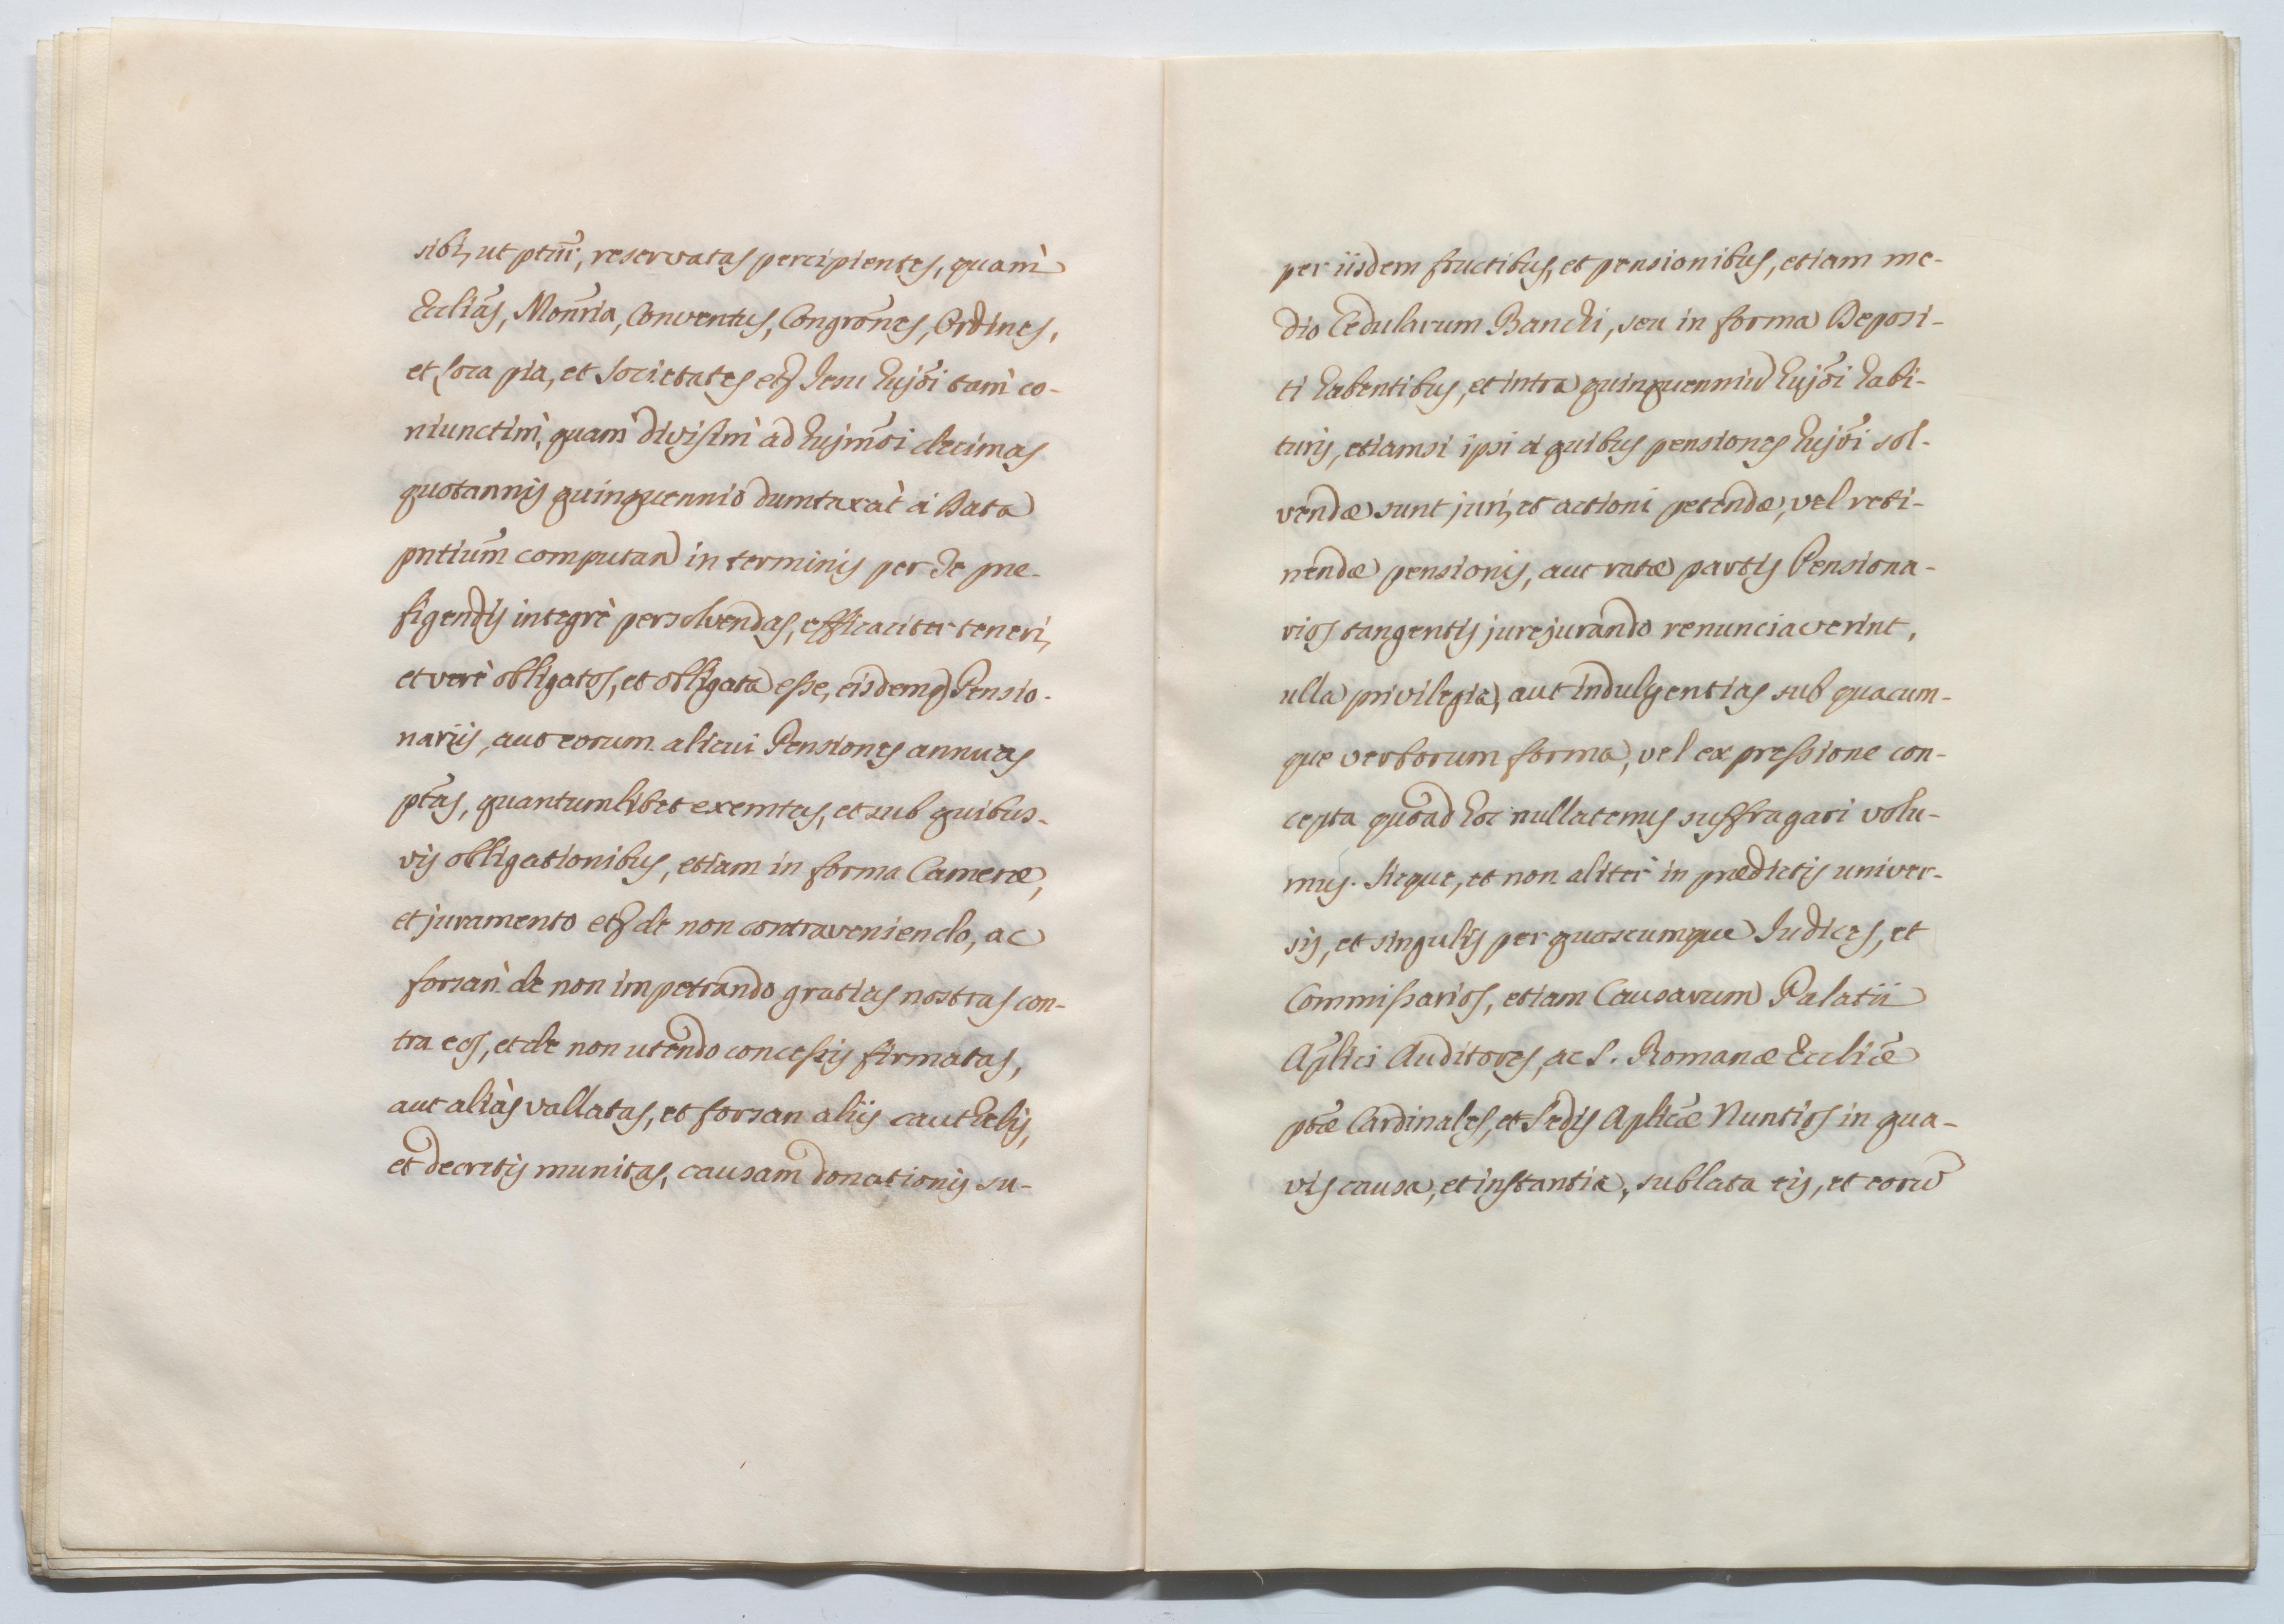 sibi, ut ptur̃, reservatas percipientes, quam̀
Ecclias̃, Monria̋, Conventus, Congrones̃, Ordines,
et Loca pia, et Societates etc̃ Jesu hujõi tam̀ co-
niunctim̀, quam̀ divisim̀ ad hujmõi decimas
quotannis quinquennio dumtaxàt à Data
pntium̃ computan) in terminis per Te præ-
figendis integrè persolvendas, efficaciter teneri,
et verè obligatos, et obligata esse, eisdemq) Pensio-
nariis, aut eorum alicui Pensiones annuas
ptas̃, quantumlibet exemtas, et sub quibus-
vis obligationibus, etiam in forma Cameræ,
et juramento etc̃ de non contraveniendo, ac
forsaǹ de non impetrando gratias nostras con-
tra eos, et de non utendo concessis firmatas,
aut aliàs vallatas, et forsan aliis cauthelis,
et decretis munitas, causam donationis su-
per iisdem fructibus, et pensionibus, etiam me-
dio Cedularum Banchi, seu in forma Deposi-
ti habentibus, et intra quinquenniũ hujõi habi-
turis, etiamsi ipsi à quibus pensiones hujõi sol-
vendæ sunt juri, et actioni petendæ, vel reti-
nendæ pensionis, aut ratæ partis Pensiona-
rios tangentis jurejurando renunciaverint,
ulla privilegia, aut indulgentias sub quacum-
que verborum forma, vel expressione con-
cepta quoad hoc nullatenus suffragari volu-
mus. Sicque, et non aliter in prædictis univer-
sis, et singulis per quoscumque Judices, et
Commissarios, etiam Causarum Palatii
Aplicĩ Auditores, ac S. Romanæ Eccliæ̃
ptæ̃ Cardinales, et Sedis Aplicæ̃ Nuntios in qua-
vis causa, et instantia, sublata eis, et eorũ